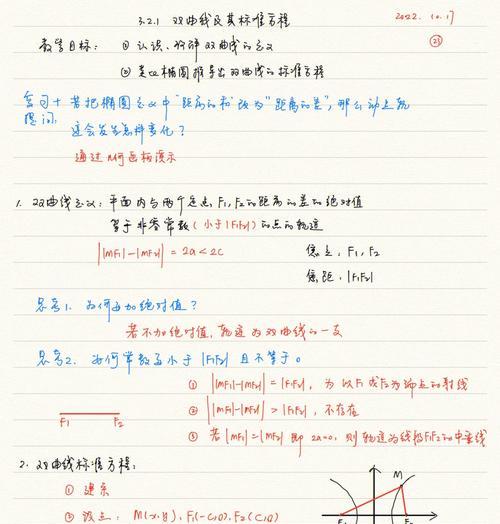 3.2.1 双曲线及其标准方程
2022.10.17
教学目标: ① 认识、理解双曲线的定义
② 类比椭圆推导出双曲线的标准方程
复习+提问: 若把椭圆定义中“距离的和”改为“距离的差”,那么动点轨
迹会发生怎样变化?
通过几何画板演示
1. 双曲线定义: 平面内与两个定点F₁,F₂的距离的差的绝对值
等于非零常数(小于|F₁F₂|)的点的轨迹
||MF₁|-|MF₂|| = 2a < 2c
焦点: F₁, F₂
焦距: |F₁F₂|
思考1. 为何要加绝对值?
若不加绝对值,轨迹为双曲线的一支
思考2. 为何常数要小于|F₁F₂|且不等于0
① ||MF₁|-|MF₂|| = |F₁F₂|, 为以F₁或F₂为端点的射线
② ||MF₁|-|MF₂|| > |F₁F₂|, 不存在
③ 若|MF₁|=|MF₂| 即 2a=0, 则轨迹为线段F₁F₂的中垂线
F₁ F₂
2. 双曲线标准方程:
① 建系
M
② 设点: M(x,y), F₁(-c,0), F₂(c,0)
F₁ F₂